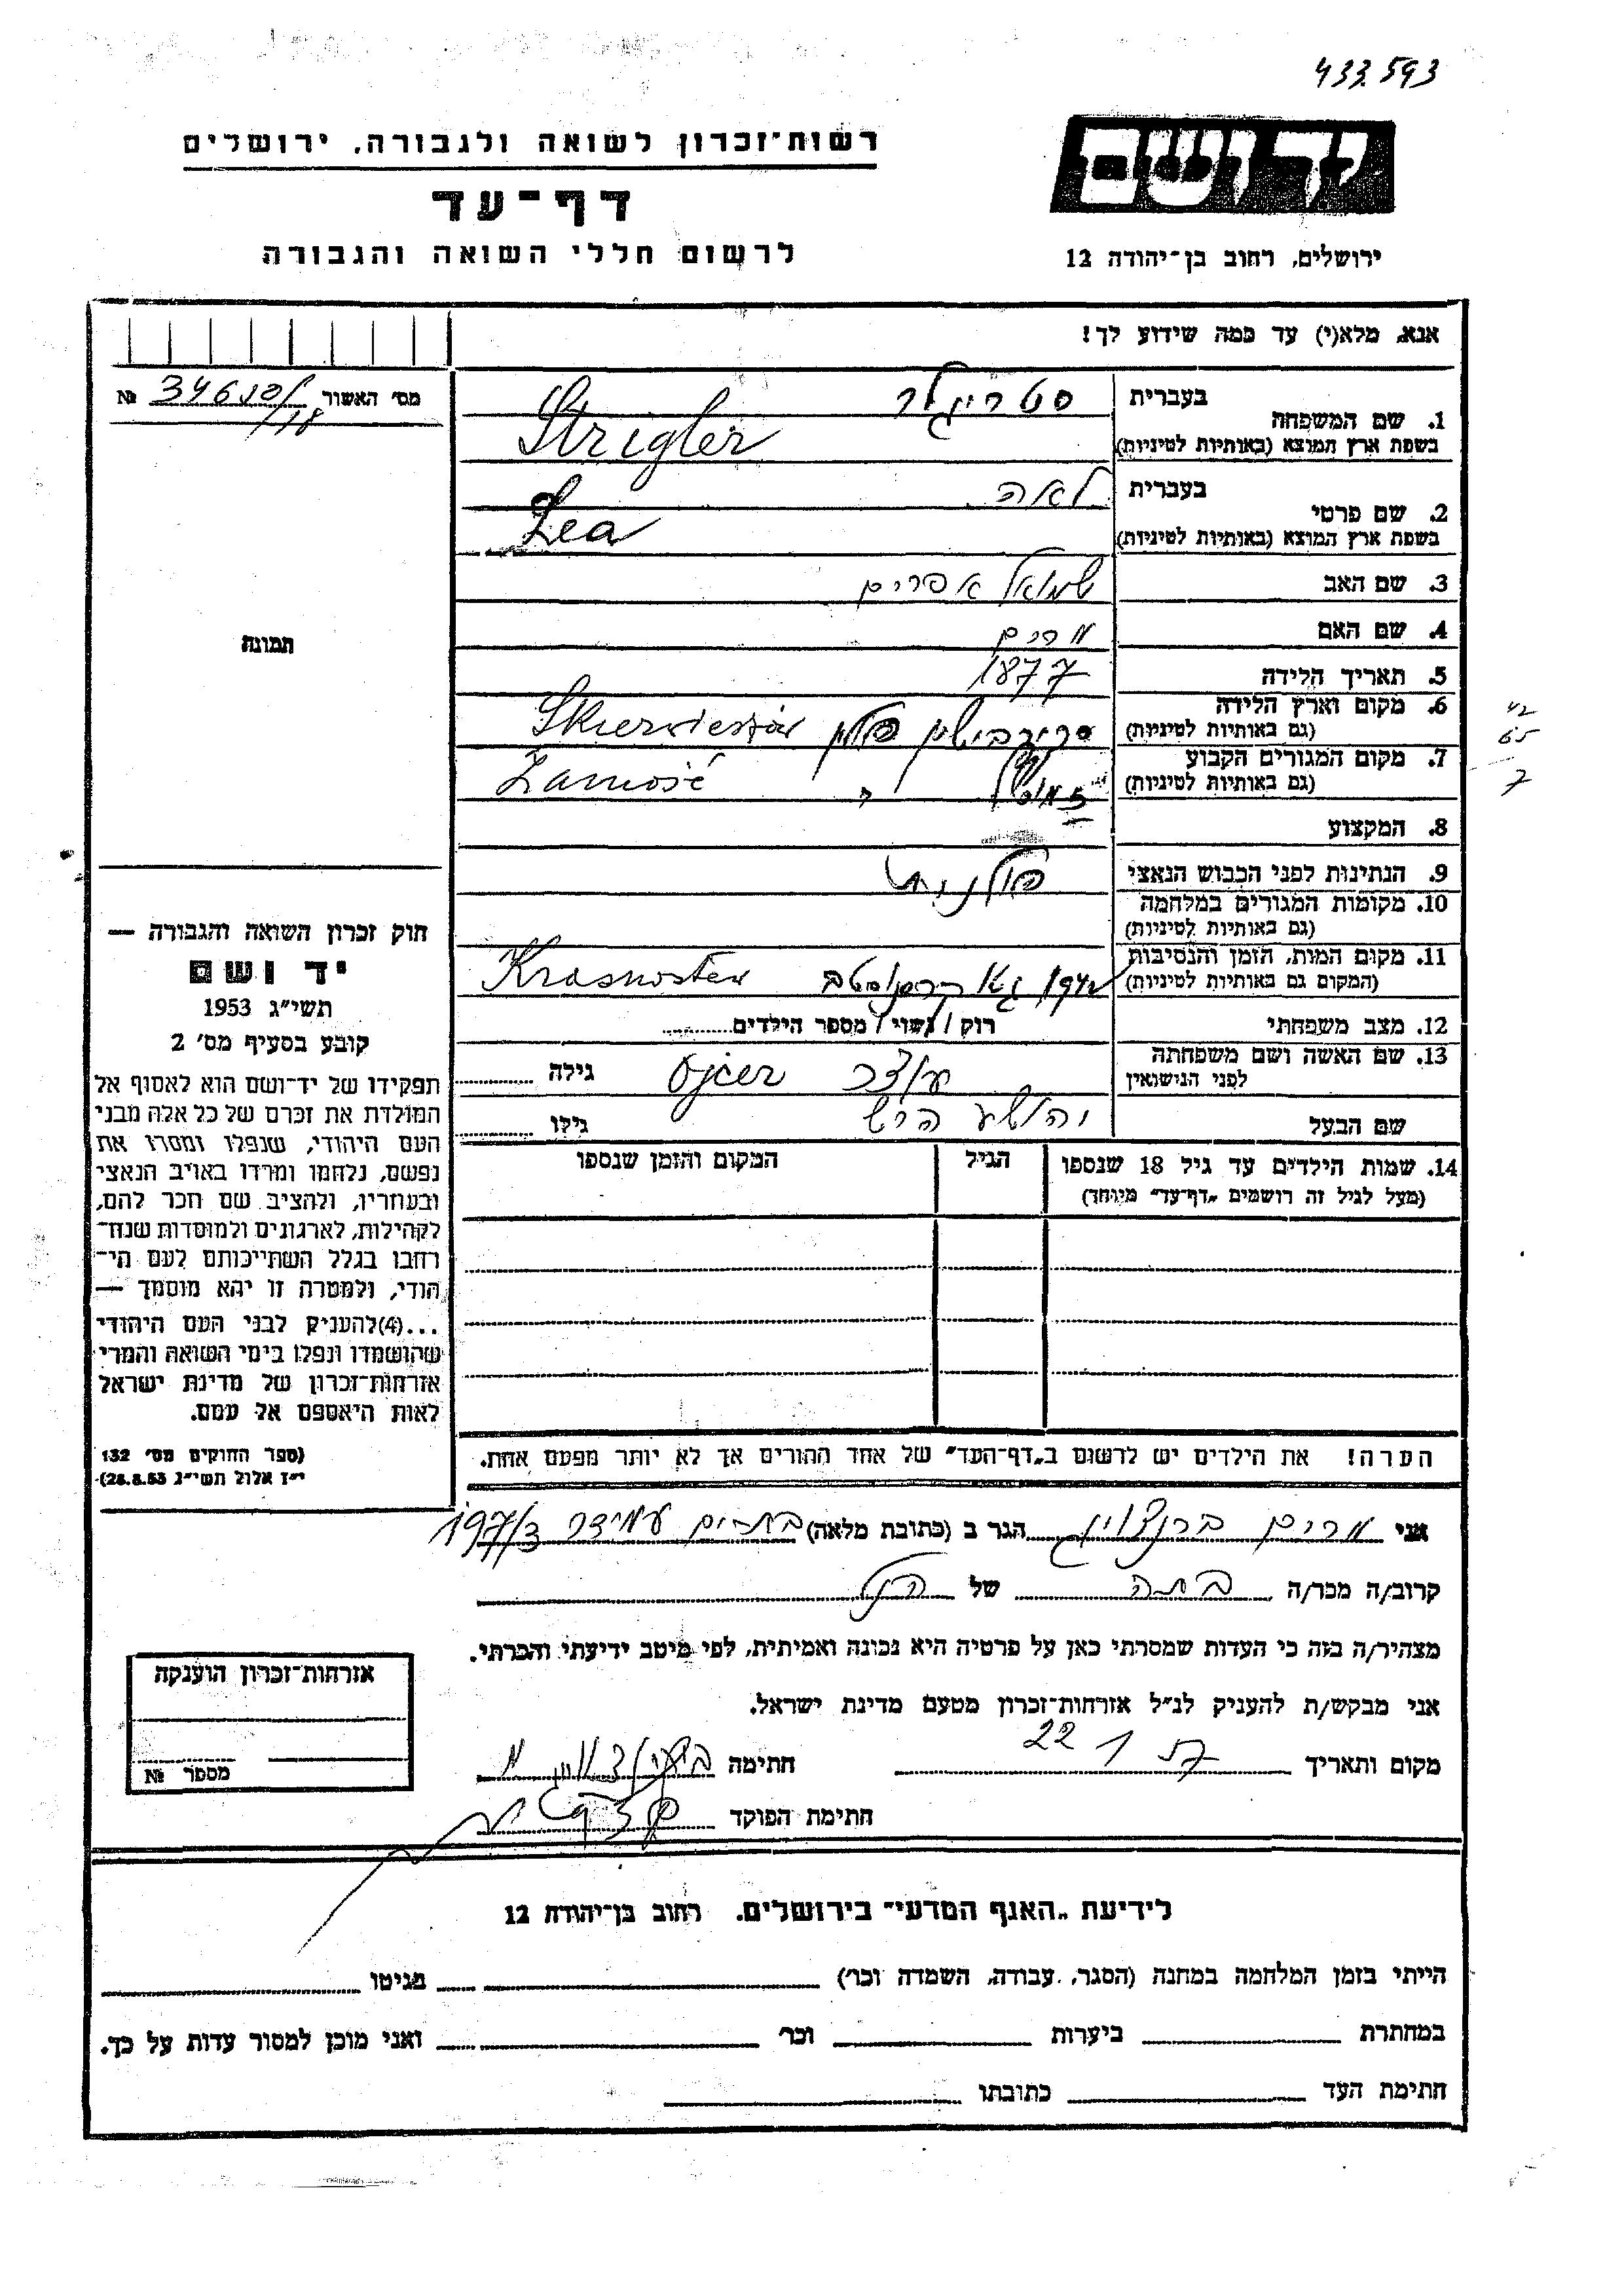 433.593
רשות־זכרון לשואה ולגבורה, ירושלים
יד ושם
דף־עד
לרשום חללי השואה והגבורה
ירושלים, רחוב בן־יהודה 12
אנא, מלא(י) עד כמה שידוע לך!
מס׳ האשור №
בעברית סטריגלר
1. שם המשפחה
בשפת ארץ המוצא (באותיות לטיניות) Strigler
בעברית לאה
2. שם פרטי
בשפת ארץ המוצא (באותיות לטיניות) Lea
3. שם האב שמואל אפרים
4. שם האם מרים
5. תאריך הלידה 1877
6. מקום וארץ הלידה פולין
(גם באותיות לטיניות)
42
65
7
7. מקום המגורים הקבוע Zamość
(גם באותיות לטיניות)
8. המקצוע
9. הנתינות לפני הכבוש הנאצי פולנית
10. מקומות המגורים במלחמה
(גם באותיות לטיניות)
11. מקום המות, הזמן והנסיבות Krasnostaw
(המקום גם באותיות לטיניות)
12. מצב משפחתי רוק / נשוי / מספר הילדים
13. שם האשה ושם משפחתה עוצר Ojcer גילה
לפני הנישואין
שם הבעל יהושע הרש גילו
14. שמות הילדים עד גיל 18 שנספו הגיל המקום והזמן שנספו
(מעל לגיל זה רושמים „דף־עד״ מיוחד)
הערה! את הילדים יש לרשום ב„דף־העד״ של אחד ההורים אך לא יותר מפעם אחת.
תמונה
חוק זכרון השואה והגבורה —
יד ושם
תשי״ג 1953
קובע בסעיף מס׳ 2
תפקידו של יד־ושם הוא לאסוף אל
המולדת את זכרם של כל אלה מבני
העם היהודי, שנפלו ומסרו את
נפשם, נלחמו ומרדו באויב הנאצי
ובעוזריו, ולהציב שם וזכר להם,
לקהילות, לארגונים ולמוסדות שנח־
רבו בגלל השתייכותם לעם הי־
הודי, ולמטרה זו יהא מוסמך —
...(4) להעניק לבני העם היהודי
שהושמדו ונפלו בימי השואה והמרי
אזרחות־זכרון של מדינת ישראל
לאות היאספם אל עמם.
(ספר החוקים מס׳ 132
י״ז אלול תשי״ג 28.8.53)
אני מרים הגר ב (כתובת מלאה) בת־ים עמידר 197/3
קרוב/ה מכר/ה בתה של הנ״ל
מצהיר/ה בזה כי העדות שמסרתי כאן על פרטיה היא נכונה ואמיתית, לפי מיטב ידיעתי והכרתי.
אני מבקש/ת להעניק לנ״ל אזרחות־זכרון מטעם מדינת ישראל.
מקום ותאריך חתימה
חתימת הפוקד
אזרחות־זכרון הוענקה
מספר №
לידיעת „האגף המדעי״ בירושלים, רחוב בן־יהודה 12
הייתי בזמן המלחמה במחנה (הסגר, עבודה, השמדה וכו׳) בגיטו
במחתרת ביערות וכו׳ ואני מוכן למסור עדות על כך.
חתימת העד כתובתו